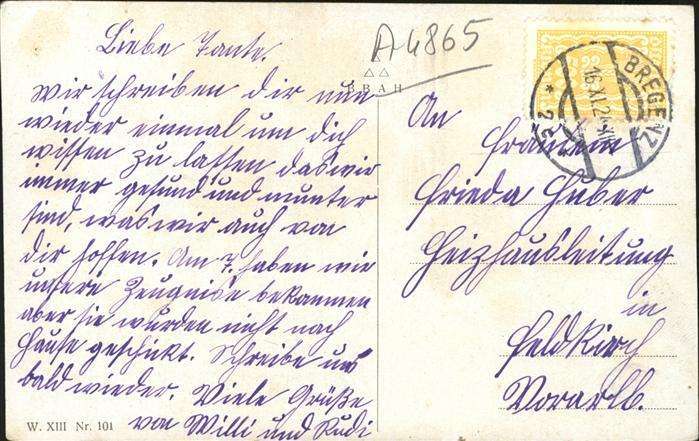 Liebe Tante.
wir schreiben dir nun
wieder einmal um dich
wissen zu lassen das wir
immer gesund und munter
sind, was wir auch von
dir hoffen. Am 7. haben wir
unsere Zeugnisse bekommen
aber sie wurden nicht nach
Hause geschikt. Schreibe uns
bald wieder. Viele Grüße
von Willi und Rudi
W. XIII Nr. 101
A4865
BRAH
BREGENZ
16.XI.2
* 2c
An
Fräulein
Frieda Huber
Heizhausleitung
in
Feldkirch
Vorarlb.